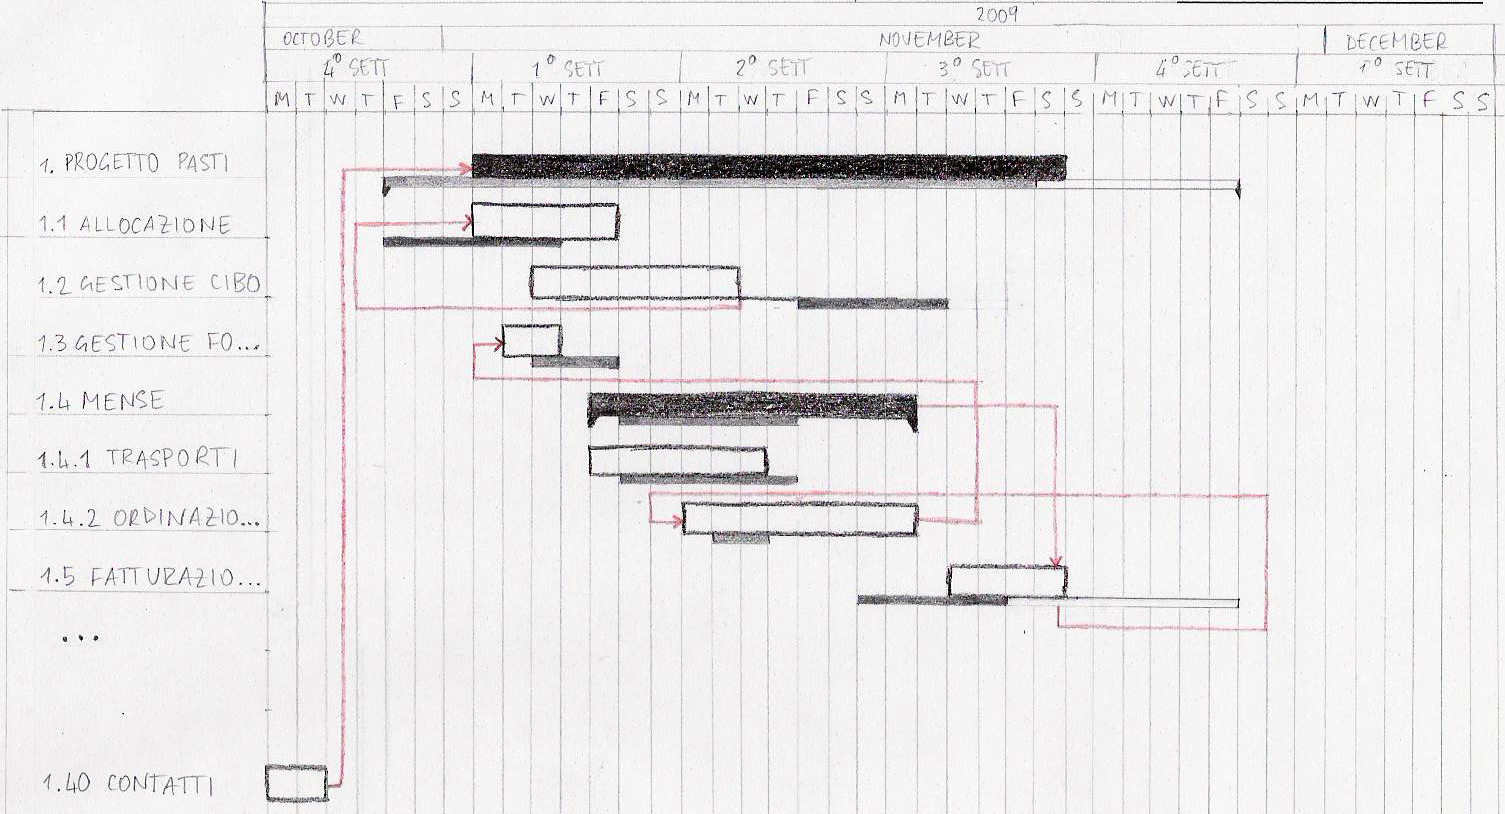 2009
OCTOBER NOVEMBER DECEMBER
4° SETT 1° SETT 2° SETT 3° SETT 4° SETT 1° SETT
M T W T F S S M T W T F S S M T W T F S S M T W T F S S M T W T F S S M T W T F S S
1. PROGETTO PASTI
1.1 ALLOCAZIONE
1.2 GESTIONE CIBO
1.3 GESTIONE FO...
1.4 MENSE
1.4.1 TRASPORTI
1.4.2 ORDINAZIO...
1.5 FATTURAZIO...
...
1.40 CONTATTI